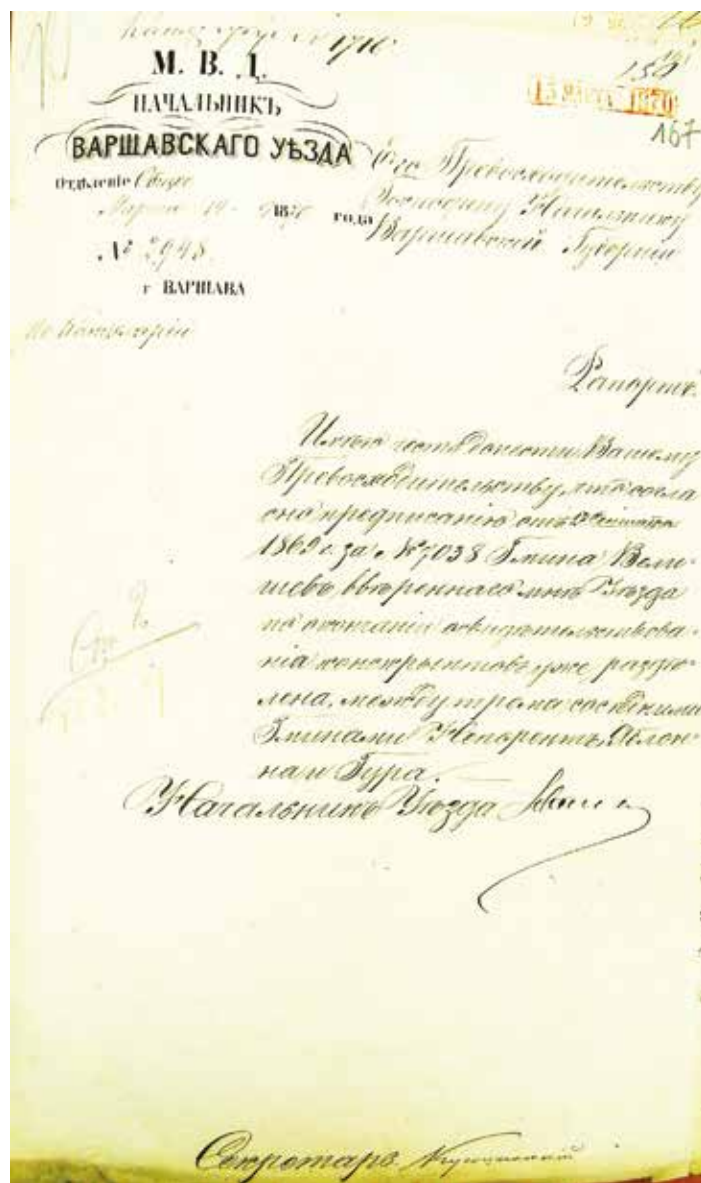 1710
М. В. Д.
НАЧАЛЬНИКЪ
ВАРШАВСКАГО УѢЗДА
Отдѣленіе Общее
Марта 14 1870 года
№ 2948
г ВАРШАВА
по Канцеляріи
150
15 МАРТА 1870
167
Его Превосходительству
Господину Начальнику
Варшавской Губерніи
Рапортъ.
Имѣю честь донести Вашему
Превосходительству, что согла
сно предписанію отъ
1869 г. за № 7038 Гмина Вели
шевъ ввѣреннаго мнѣ Уѣзда
по окончаніи освидѣтельствова-
нія конскрыптовъ уже раздѣ-
лена, между тремя сосѣдними
Гминами Непорентъ, Яблон-
на и Гура.
Начальникъ Уѣзда
Секретарь